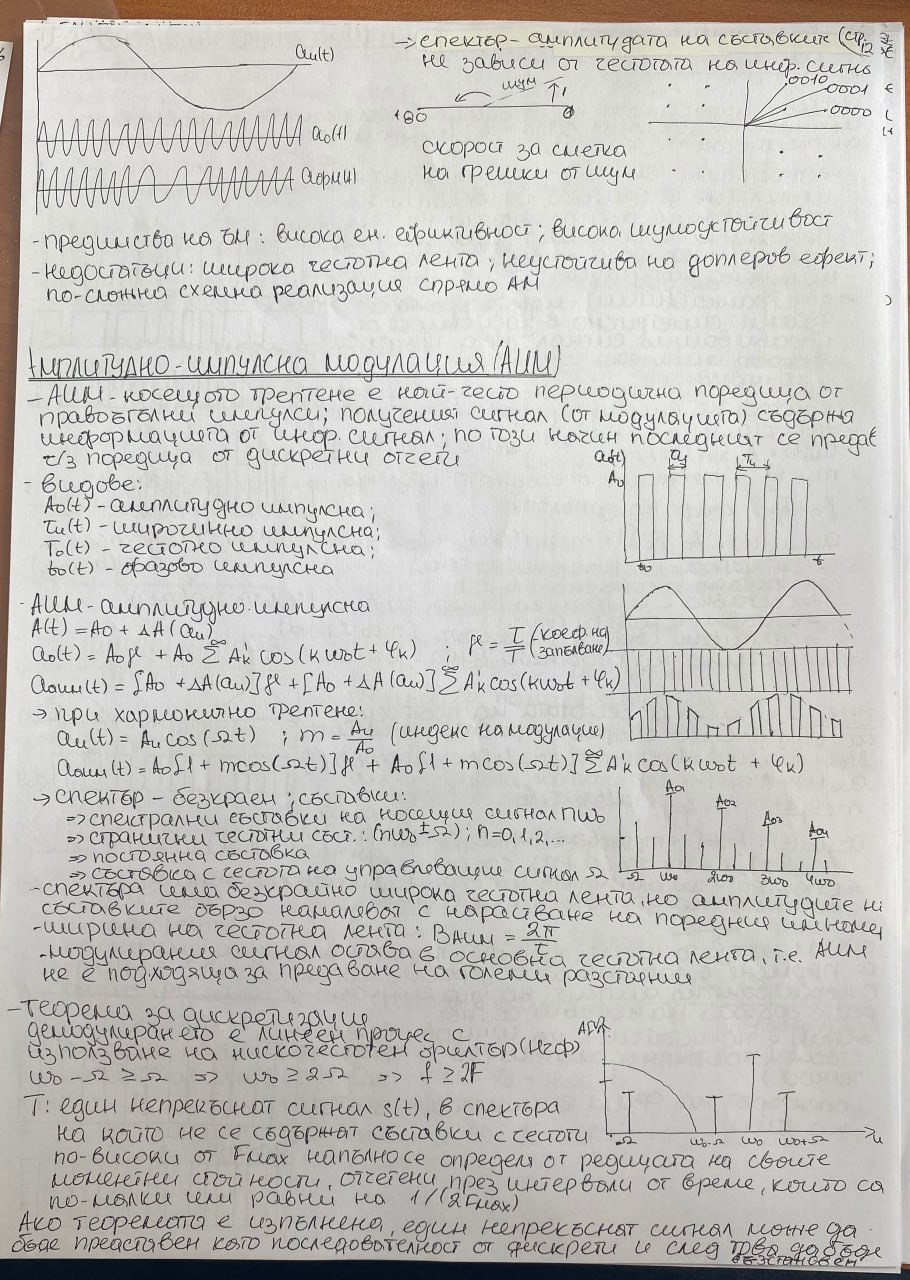 aᵤ(t)
→ спектър - амплитудата на съставките (стр. 12
не зависи от честотата на инф. сигна
шум
180
0
0010
0001
0000
a₀(t)
скорост за сметка
на грешки от шум
- предимства на ЪМ: висока ен. ефиктивност; висока шумоустойчивост
- недостатъци: широка честотна лента; неустойчива на доплеров ефект;
по-сложна схемна реализация спрямо АМ
Амплитудно-импулсна модулация (АИМ)
- АИМ - носещото трептене е най-често периодична поредица от
правоъгълни импулси; получения сигнал (от модулацията) съдържа
информацията от инф. сигнал; по този начин последният се предав
ч/з поредица от дискретни отчети
- видове:
A₀(t) - амплитудно импулсна;
τᵤ(t) - широчинно импулсна;
T₀(t) - честотно импулсна;
t₀(t) - фазово импулсна
a₀(t)
A₀
τᵤ
Tᵤ
t₀
t
- АИМ - амплитудно-импулсна
A(t) = A₀ + ΔA(aᵤ)
a₀(t) = A₀γ + A₀ ∑^∞ A'ₖ cos(kω₀t + φₖ) ; γ = τ/T (коеф. на запълване)
aаим(t) = [A₀ + ΔA(aᵤ)]γ + [A₀ + ΔA(aᵤ)] ∑^∞ A'ₖ cos(kω₀t + φₖ)
→ при хармонично трептене:
aᵤ(t) = Aᵤ cos(Ωt) ; m = Aᵤ/A₀ (индекс на модулация)
aаим(t) = A₀[1 + mcos(Ωt)]γ + A₀[1 + mcos(Ωt)] ∑^∞ A'ₖ cos(kω₀t + φₖ)
→ спектър - безкраен; съставки:
⇒ спектрални съставки на носещия сигнал nω₀
⇒ странични честотни съст.: (nω₀ ± Ω); n=0,1,2,...
⇒ постоянна съставка
⇒ съставка с честота на управляващия сигнал Ω
A₀₁
A₀₂
A₀₃
A₀₄
Ω ω₀ 2ω₀ 3ω₀ 4ω₀
- спектъра има безкрайно широка честотна лента, но амплитудите н
съставките бързо намаляват с нарастване на поредния им номер
- ширина на честотна лента: Bаим = 2π/τ
- модулирания сигнал остава в основна честотна лента, т.е. АИМ
не е подходяща за предаване на големи разстояния
- Теорема за дискретизация
демодулирането е линеен процес с
използване на нискочестотен филтър (НЧФ)
ω₀ - Ω ≥ Ω ⇒ ω₀ ≥ 2Ω ⇒ f ≥ 2F
Ω ω₀-Ω ω₀ ω₀+Ω
Т: един непрекъснат сигнал s(t), в спектъра
на който не се съдържат съставки с честоти
по-високи от Fmax напълно се определя от редицата на своите
моментни стойности, отчетени през интервали от време, които са
по-малки или равни на 1/(2Fmax)
Ако теоремата е изпълнена, един непрекъснат сигнал може да
бъде представен като последователност от дискрети и след това да бъде
възстановен